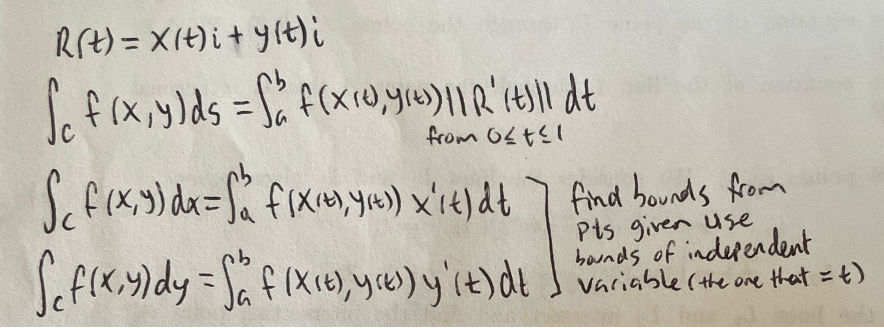 R(t) = x(t)i + y(t)i
∫_C f(x,y)ds = ∫_a^b f(x(t),y(t))||R'(t)|| dt
from 0≤t≤1
∫_C f(x,y)dx = ∫_a^b f(x(t),y(t)) x'(t)dt
∫_C f(x,y)dy = ∫_a^b f(x(t),y(t)) y'(t)dt
find bounds from
pts given use
bounds of independent
variable (the one that = t)